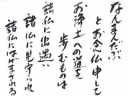 なんまんだぶ
とお念仏申して
お浄土への道を
歩むものは
諸仏に出遇い
諸仏に見守られ
諸仏にほめられる